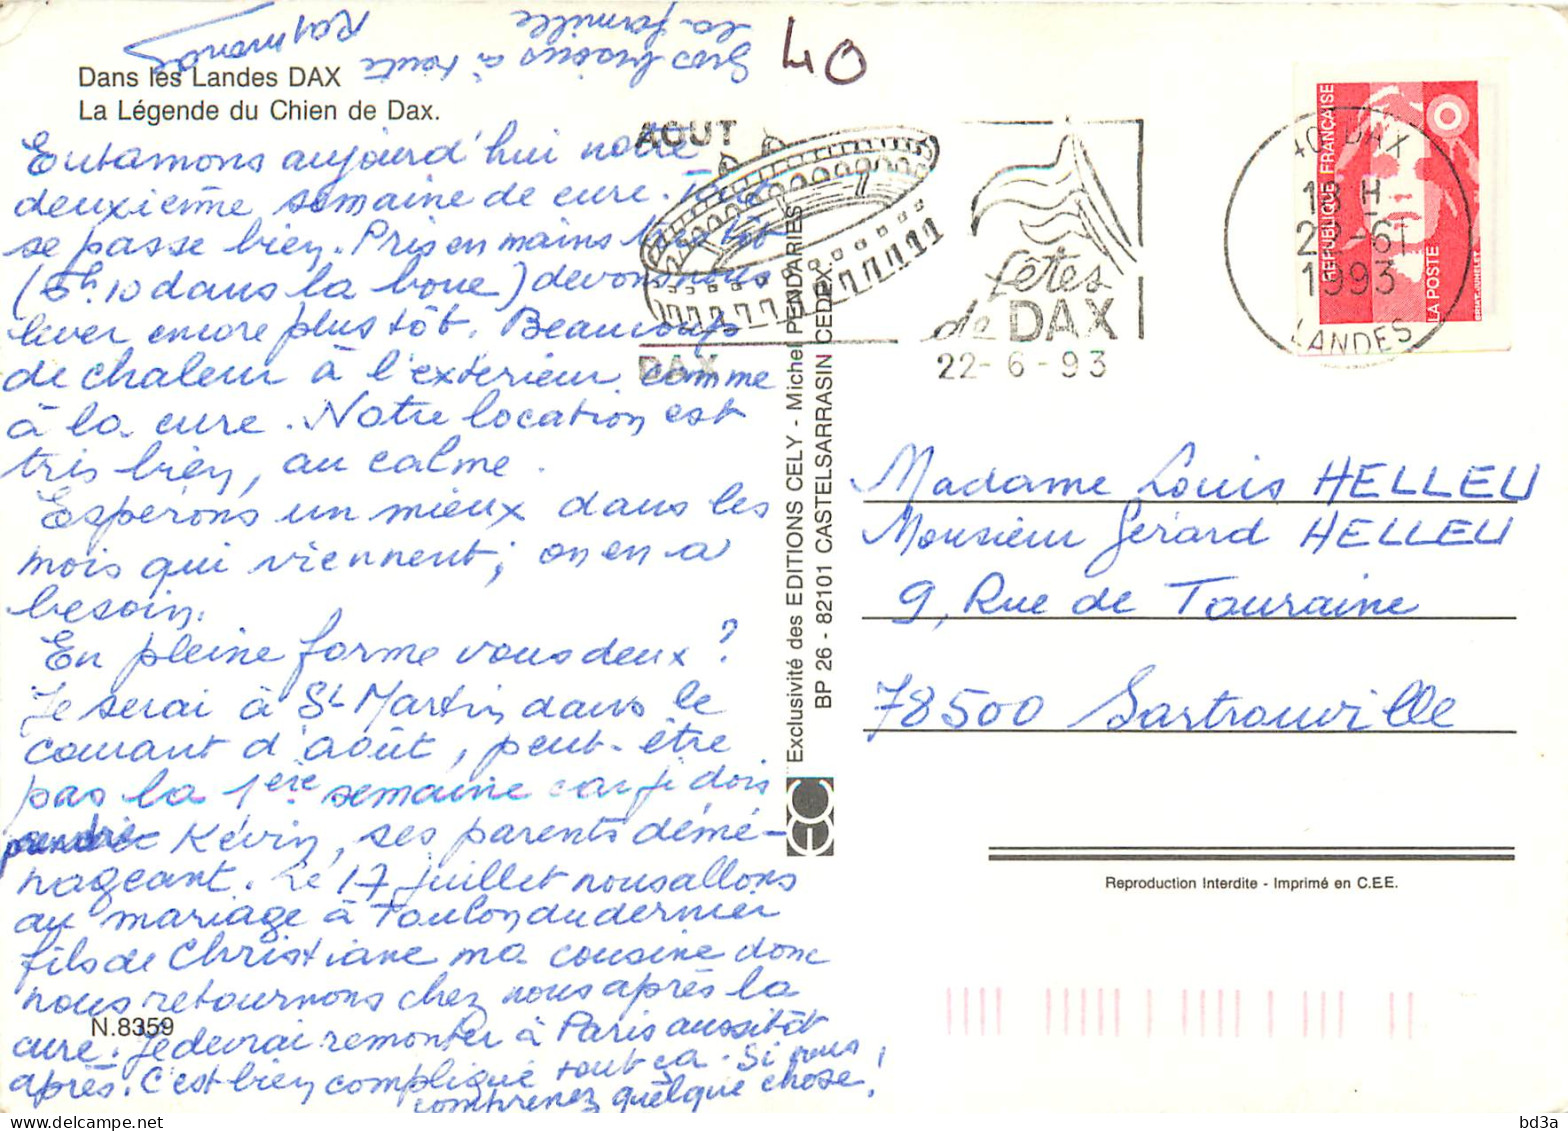 Dans les Landes DAX
La Légende du Chien de Dax.
Entamons aujourd'hui notre
deuxième semaine de cure. Tout
se passe bien. Pris en mains très tôt
(5h10 dans la boue) devons nous
lever encore plus tôt. Beaucoup
de chaleur à l'extérieur comme
à la cure. Notre location est
très bien, au calme.
Espérons un mieux dans les
mois qui viennent; on en a
besoin.
En pleine forme vous deux?
Je serai à St Martin dans le
courant d'août, peut-être
pas la 1ère semaine car je dois
prendre Kévin, ses parents démé-
nageant. Le 17 juillet nous allons
au mariage à Toulon du dernier
fils de Christiane ma cousine donc
nous retournons chez nous après la
cure. Je devrai remonter à Paris aussitôt
après. C'est bien compliqué tout ça. Si vous
comprenez quelque chose!
Gros bisous à toute
la famille
Raymonde
N.8359
40
AOUT
DAX
fêtes
de DAX
22-6-93
40 DAX
18 H
22-6
1993
LANDES
RÉPUBLIQUE FRANÇAISE
LA POSTE
Exclusivité des EDITIONS CELY - Michel PENDARIES
BP 26 - 82101 CASTELSARRASIN CEDEX
EC
Madame Louis HELLEU
Monsieur Gérard HELLEU
9, Rue de Touraine
78500 Sartrouville
Reproduction Interdite - Imprimé en C.E.E.
delcampe.net
bd3a